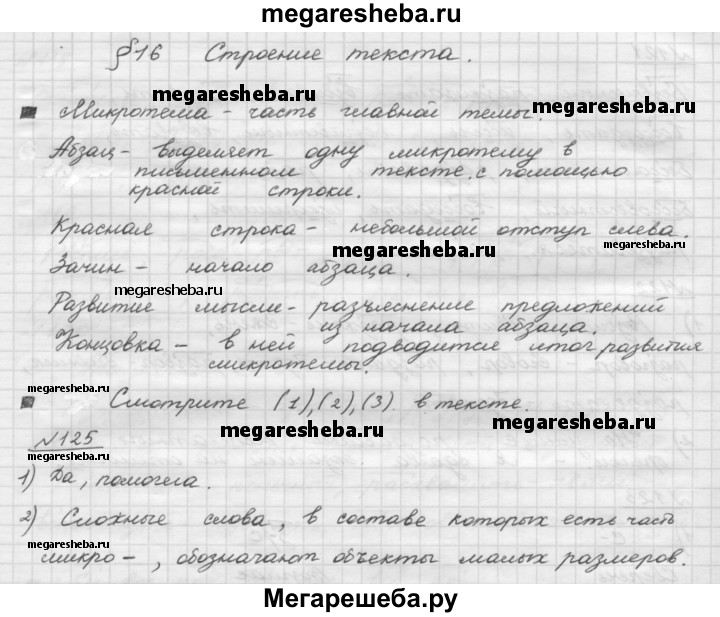 megaresheba.ru
§16 Строение текста.
megaresheba.ru
megaresheba.ru
Микротема - часть главной темы.
Абзац - выделяет одну микротему в
письменном тексте с помощью
красной строки.
Красная строка - небольшой отступ слева.
megaresheba.ru
megaresheba.ru
Зачин - начало абзаца.
megaresheba.ru
Развитие мысли - разъяснение предложений
megaresheba.ru
из начала абзаца.
Концовка - в ней подводится итог развития
микротемы.
megaresheba.ru
Смотрите (1),(2),(3) в тексте.
megaresheba.ru
megaresheba.ru
№125
megaresheba.ru
1) Да, помогла.
2) Сложные слова, в составе которых есть часть
megaresheba.ru
микро - , обозначают объекты малых размеров.
megaresheba.ru
Мегарешеба.ру